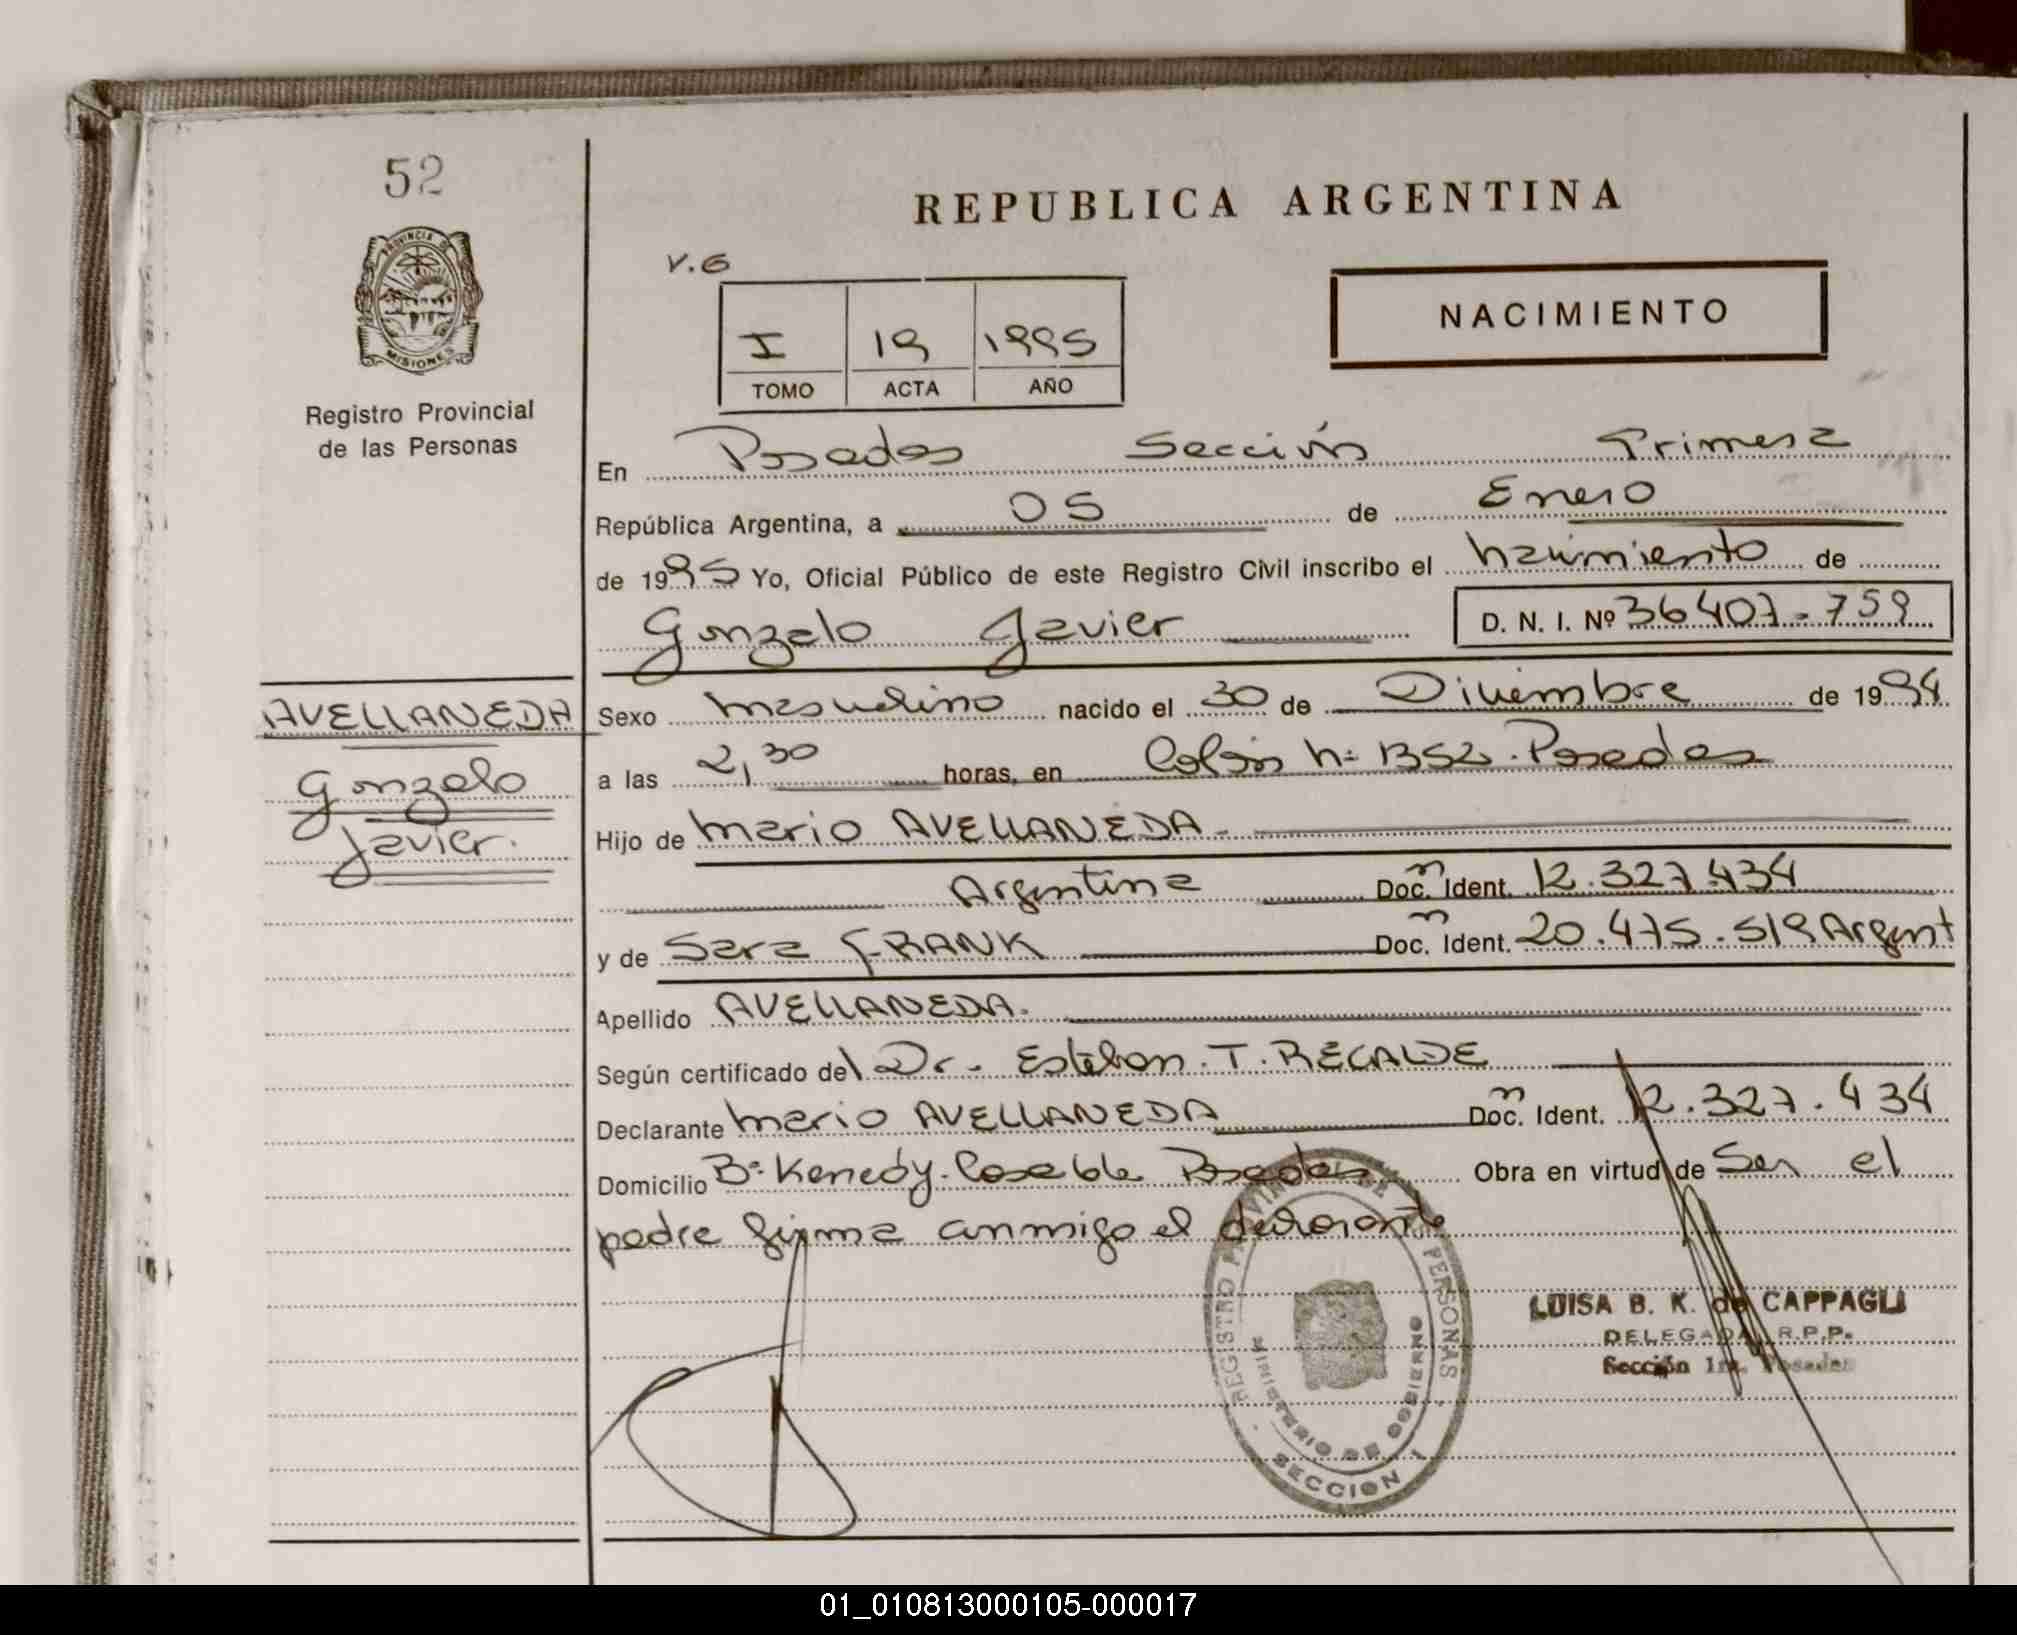 52
REPUBLICA ARGENTINA
PROVINCIA DE
MISIONES
Registro Provincial
de las Personas
V.G
I 19 1995
TOMO ACTA AÑO
NACIMIENTO
En Posadas Sección Primera
República Argentina, a 05 de Enero
de 1995 Yo, Oficial Público de este Registro Civil inscribo el nacimiento de
Gonzalo Javier D. N. I. Nº 36.407.759
AVELLANEDA
Gonzalo
Javier.
Sexo masculino nacido el 30 de Diciembre de 1994
a las 2,30 horas, en Colón nº 1352. Posadas
Hijo de Mario AVELLANEDA
Argentina Doc. Ident. 12.327.434
y de Sara FRANK Doc. Ident. 20.475.519 Argent
Apellido AVELLANEDA.
Según certificado del Dr. Esteban. T. RECALDE
Declarante Mario AVELLANEDA Doc. Ident. 12.327.434
Domicilio Bº Kenedy. Posadas Obra en virtud de Ser el
padre firma conmigo el declarante
REGISTRO PROVINCIAL DE LAS PERSONAS
MINISTERIO DE GOBIERNO
SECCION 1
LUISA B. K. de CAPPAGLI
DELEGADA R.P.P.
Sección 1ra. Posadas
01_010813000105-000017